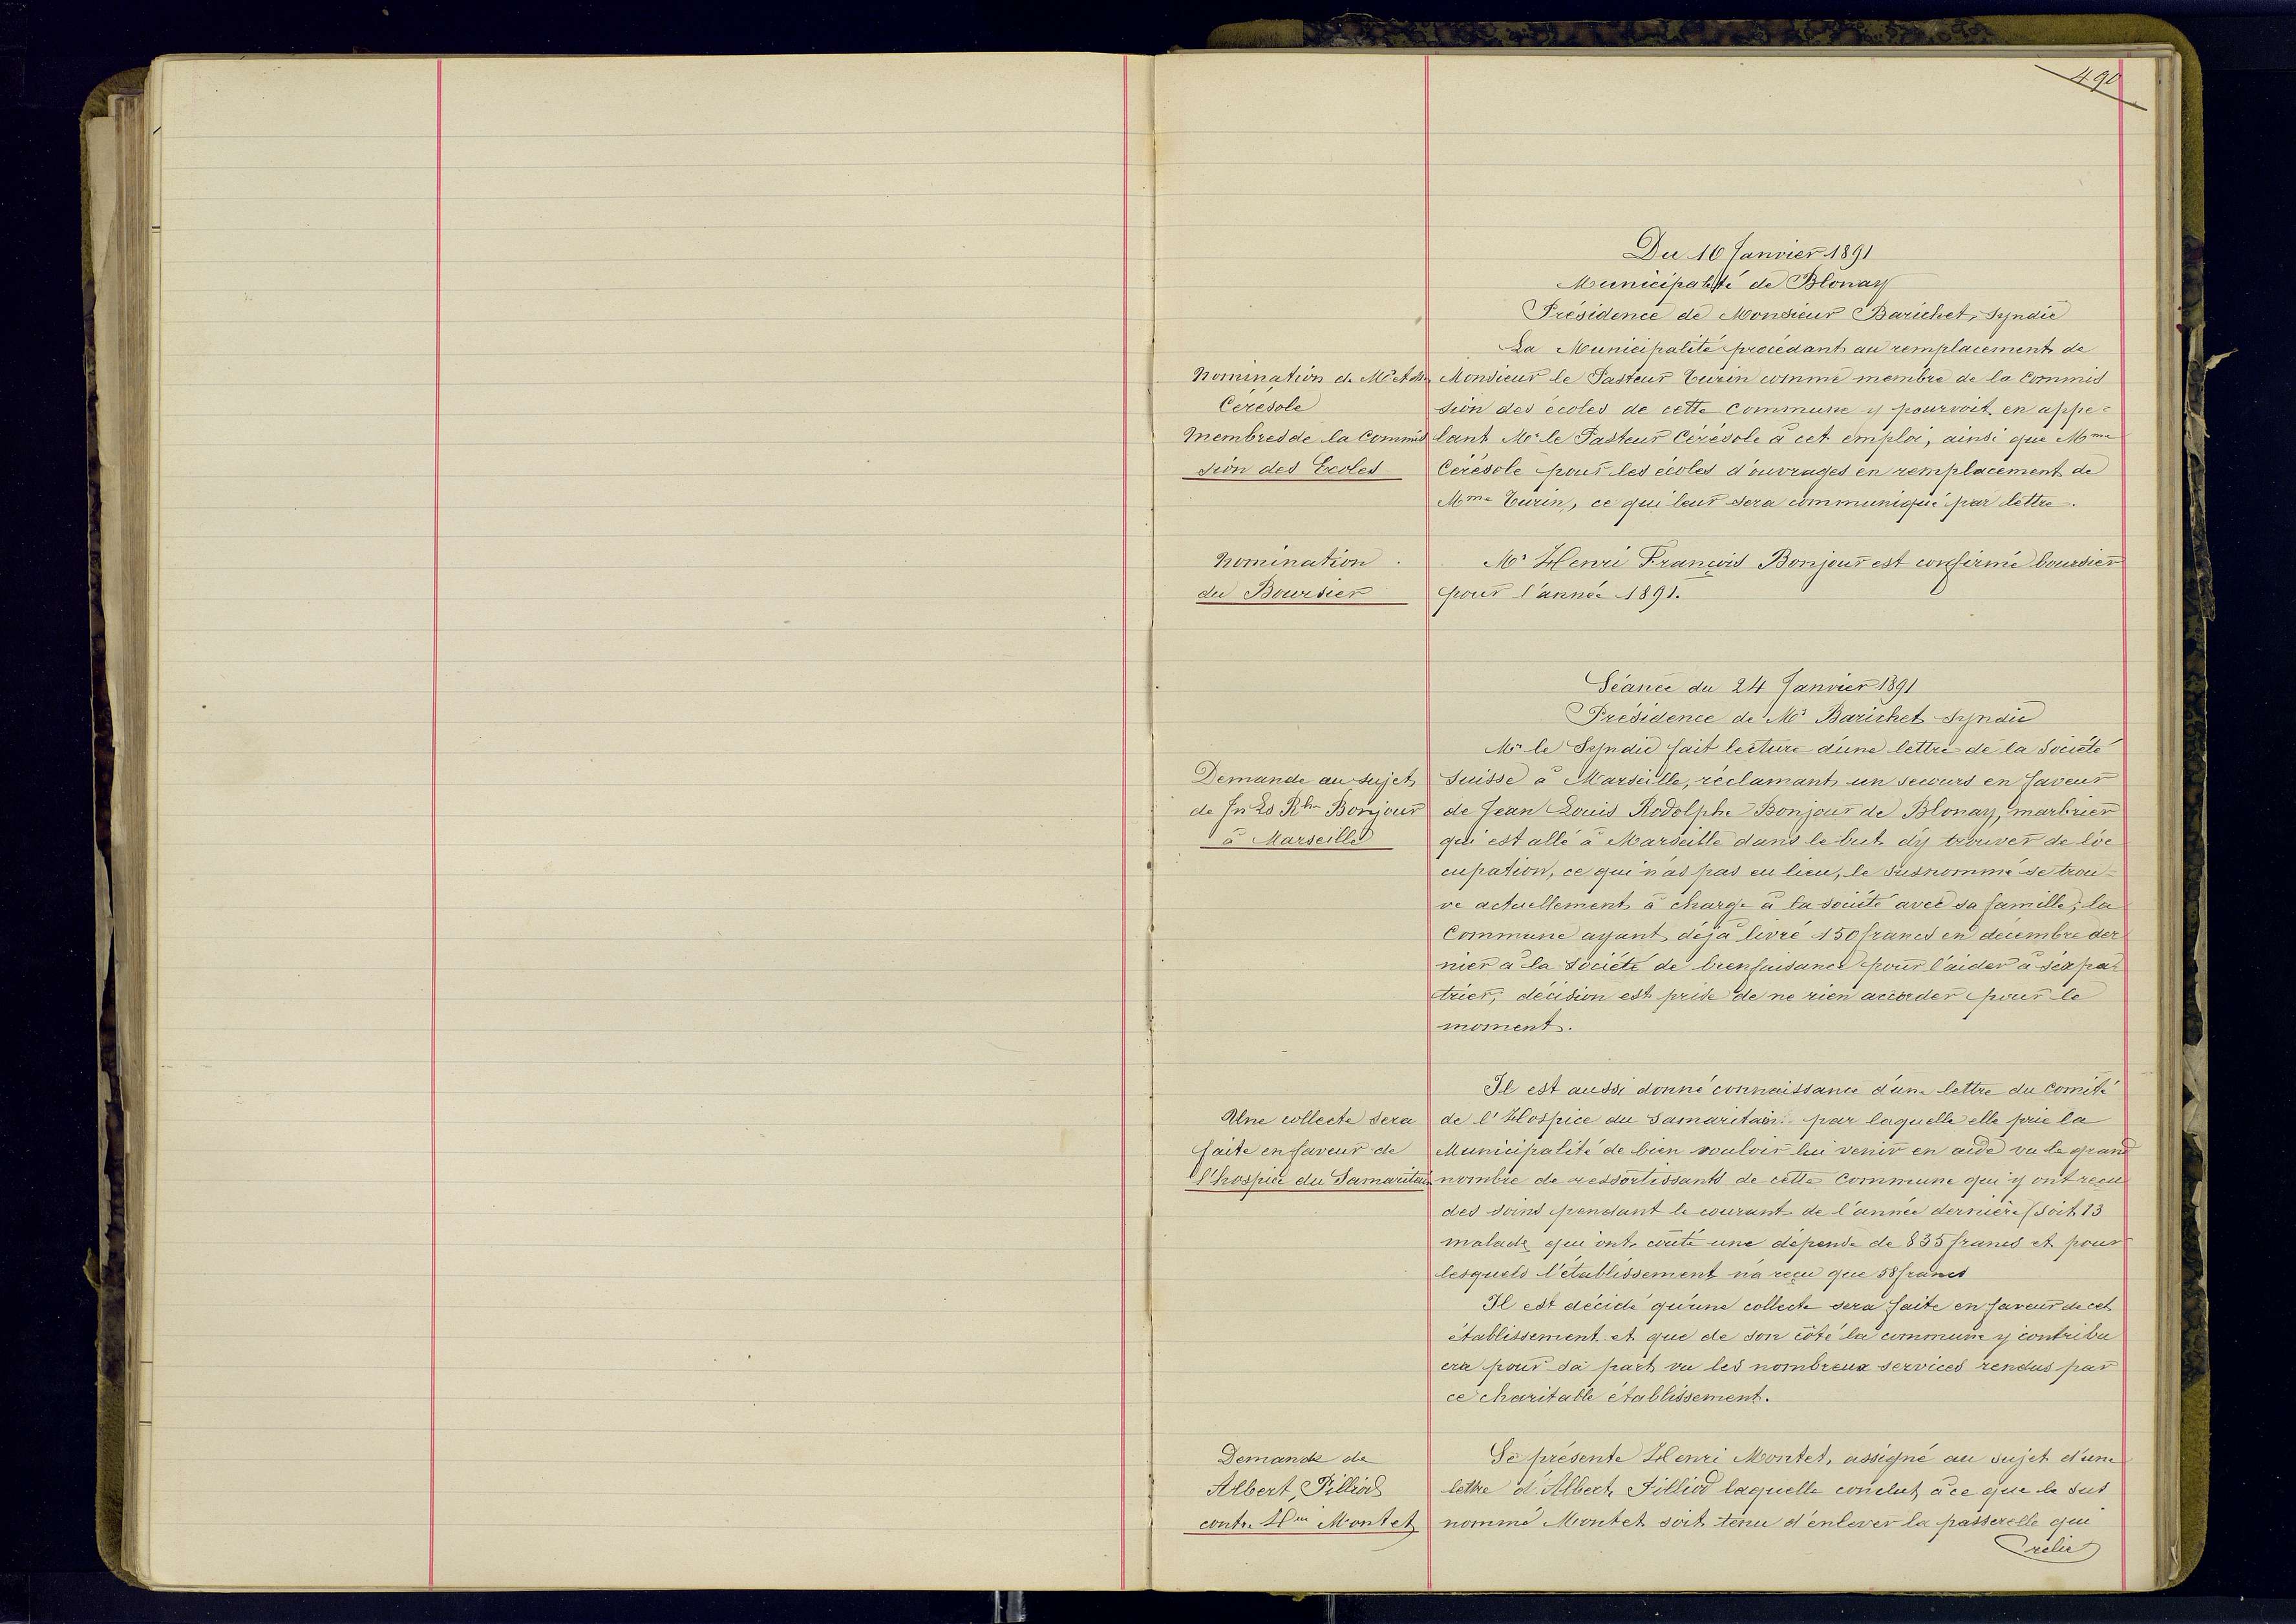 490
Du 10 Janvier 1891
Municipalité de Blonay
Présidence de Monsieur Barichet, Syndic
La Municipalité procédant au remplacement de
Nomination de Mr et Mme
Cérésole
Membres de la Commis
sion des Ecoles
Monsieur le Pasteur Turin comme membre de la Commis
sion des écoles de cette Commune y pourvoit en appe=
lant Mr le Pasteur Cérésole à cet emploi, ainsi que Mme
Cérésole pour les écoles d'ouvrages en remplacement de
Mme Turin, ce qui leur sera communiqué par lettre.
Nomination
du Boursier
Mr Henri François Bonjour est confirmé boursier
pour l'année 1891.
Séance du 24 Janvier 1891
Présidence de Mr Barichet Syndic
Mr le Syndic fait lecture d'une lettre de la Société
Demande au sujet
de Jn Ls Rhe Bonjour
à Marseille
Suisse à Marseille, réclamant un secours en faveur
de Jean Louis Rodolphe Bonjour de Blonay, marbrier
qui est allé à Marseille dans le but d'y trouver de l'oc
cupation, ce qui n'as pas eu lieu, le susnommé se trou=
ve actuellement à charge à la société avec sa famille; la
Commune ayant déjà livré 150 francs en décembre der
nier à la Société de bienfaisance pour l'aider à s'expa=
trier, décision est prise de ne rien accorder pour le
moment.
Il est aussi donné connaissance d'une lettre du Comité
Une collecte sera
faite en faveur de
l'hospice du Samaritain
de l'Hospice du Samaritain par laquelle elle prie la
Municipalité de bien vouloir lui venir en aide vu le grand
nombre de ressortissants de cette Commune qui y ont reçu
des soins pendant le courant de l'année dernière (soit 13
malade qui ont coûté une dépense de 835 francs et pour
lesquels l'établissement n'a reçu que 58 francs
Il est décidé qu'une collecte sera faite en faveur de cet
établissement et que de son côté la commune y contribu
era pour sa part vu les nombreux services rendus par
ce charitable établissement.
Demande de
Albert Pilliod
contre Hri Montet
Se présente Henri Montet, assigné au sujet d'une
lettre d'Albert Pilliod laquelle conclut à ce que le sus
nommé Montet soit tenu d'enlever la passerelle qui
relie